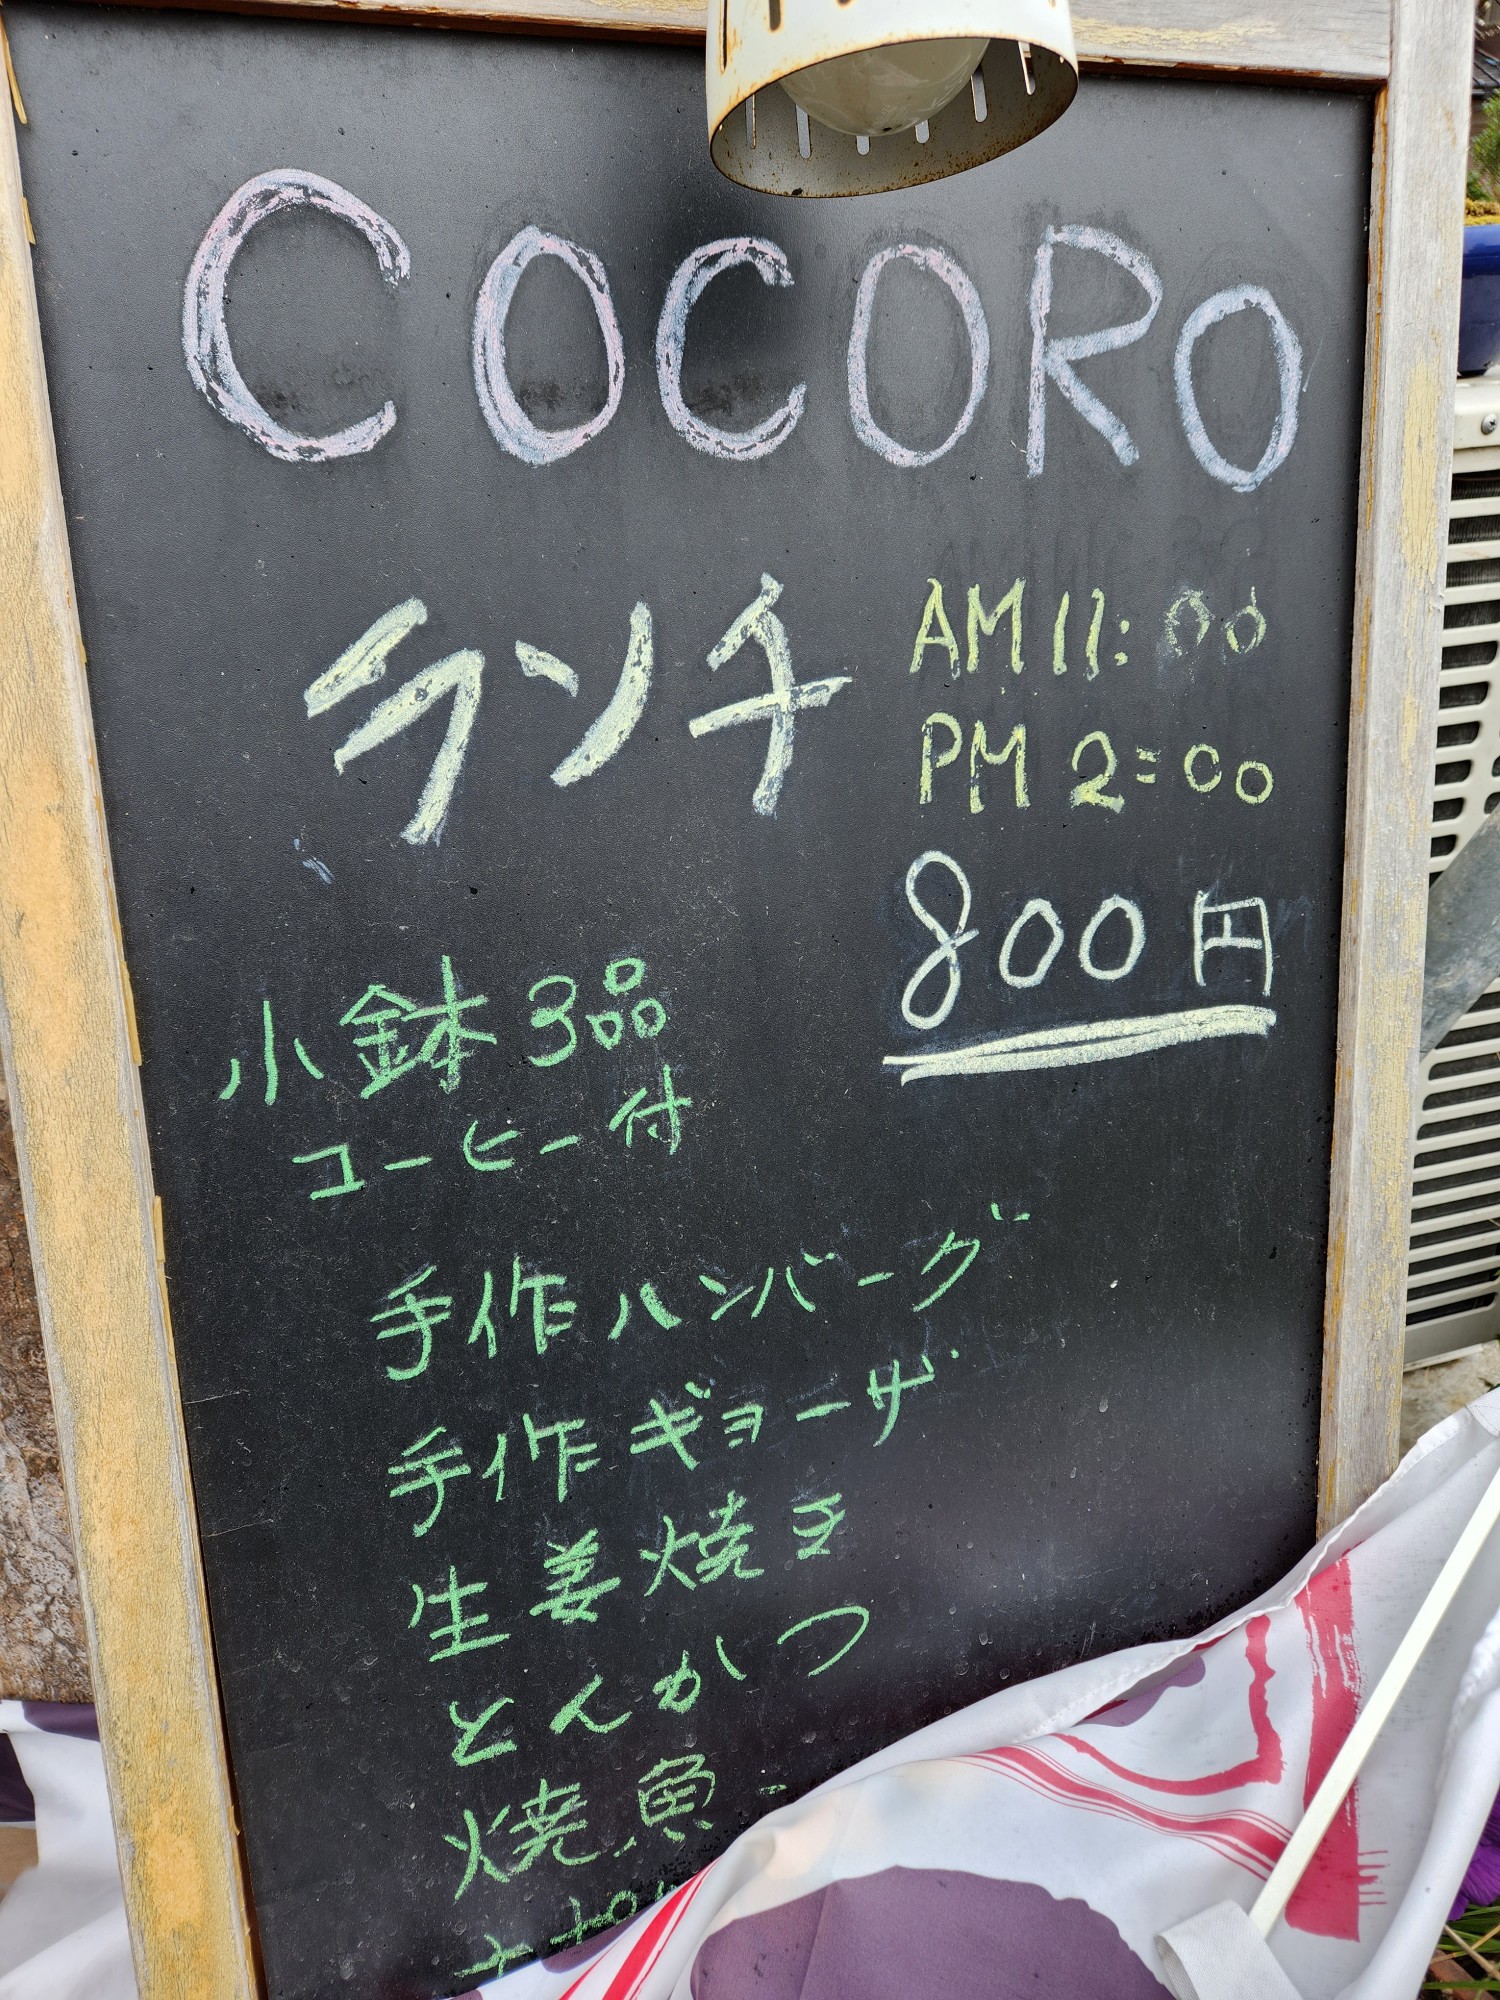 COCORO
ランチ
AM 11:00
PM 2:00
800円
小鉢3品
コーヒー付
手作ハンバーグ
手作ギョーザ
生姜焼き
とんかつ
焼魚